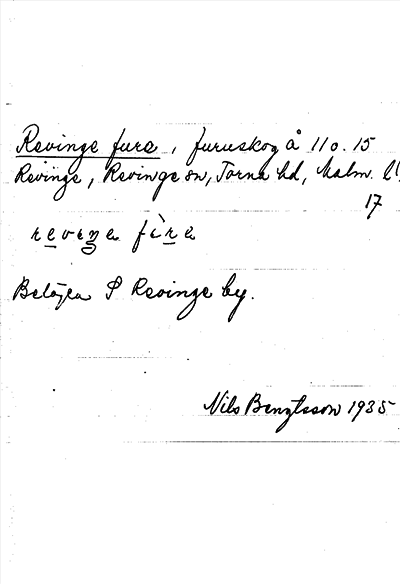 Revinge fure, furuskog å 11 o. 15
Revinge, Revinge sn, Torna hd, Malm. l.
17
Belägen S Revinge by.
Nils Bengtsson 1935